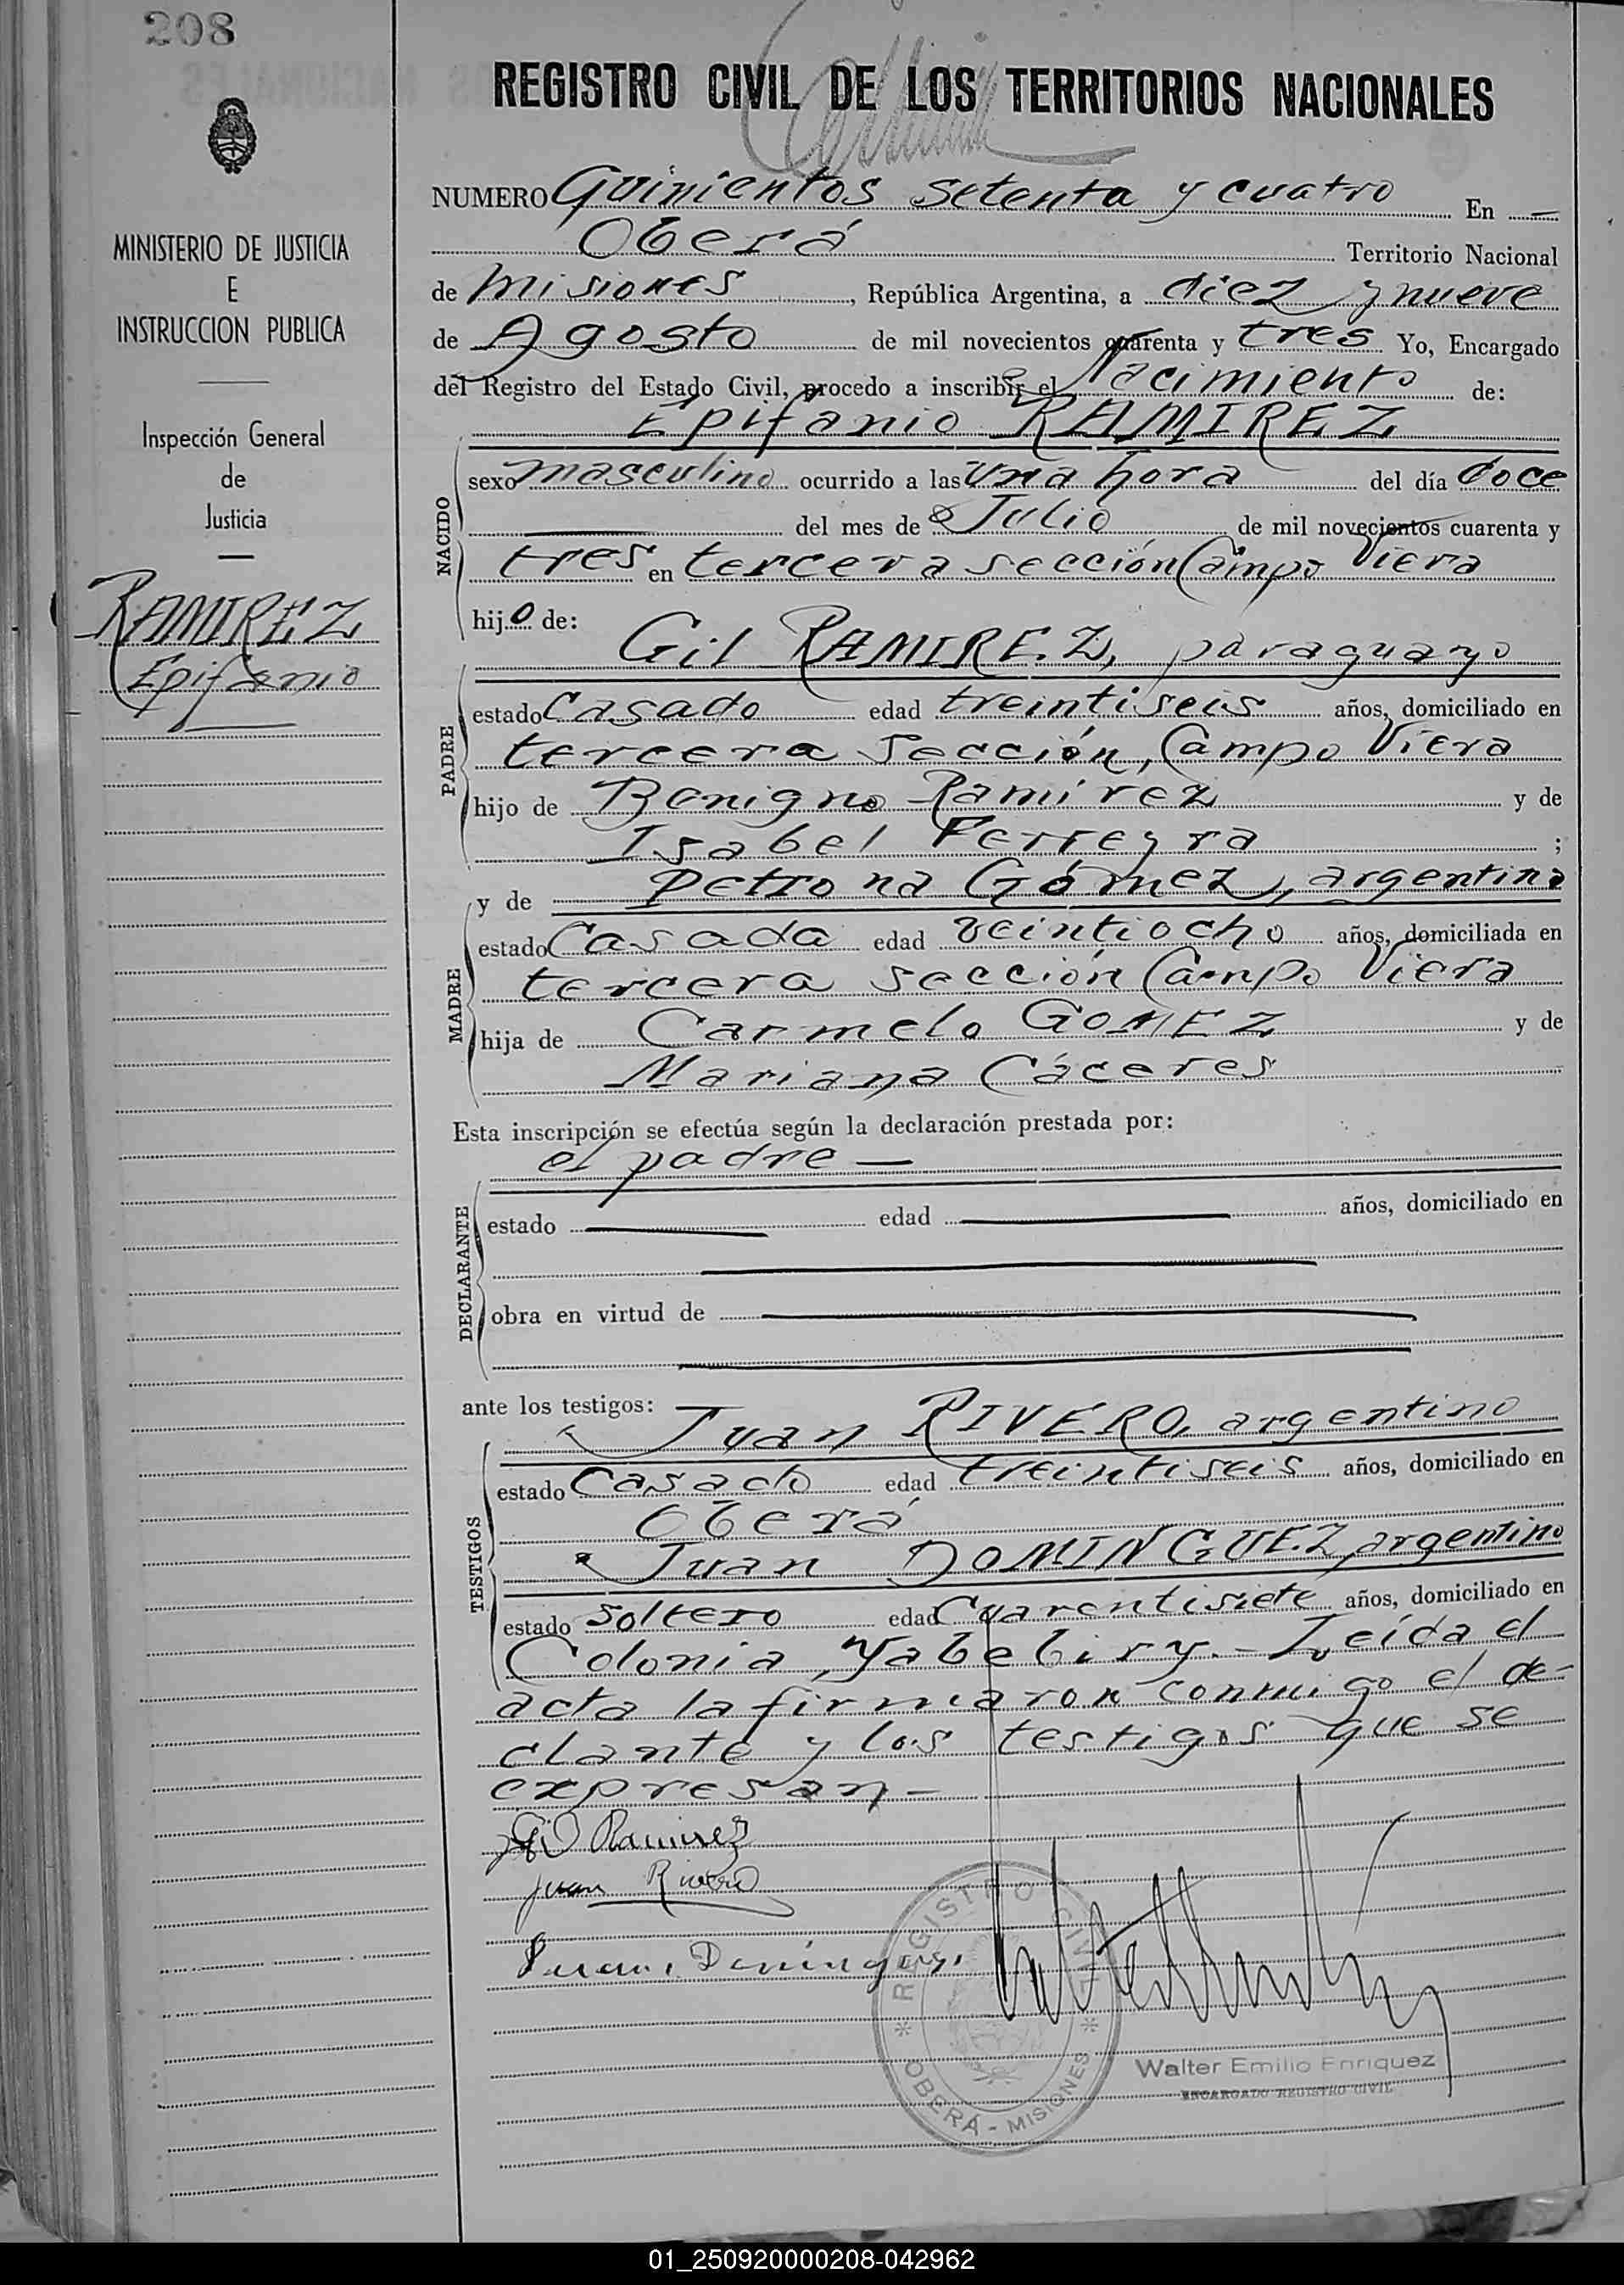 208
REGISTRO CIVIL DE LOS TERRITORIOS NACIONALES
MINISTERIO DE JUSTICIA
E
INSTRUCCION PUBLICA
Inspección General
de
Justicia
RAMIREZ
Epifanio
NUMERO Quinientos setenta y cuatro En
Oberá Territorio Nacional
de Misiones, República Argentina, a diez y nueve
de Agosto de mil novecientos cuarenta y tres Yo, Encargado
del Registro del Estado Civil, procedo a inscribir el Nacimiento de:
Epifanio RAMIREZ
NACIDO
sexo masculino ocurrido a las una hora del día doce
del mes de Julio de mil novecientos cuarenta y
tres en tercera sección Campo Viera
hijo de:
Gil RAMIREZ, paraguayo
PADRE
estado Casado edad treintiseis años, domiciliado en
tercera Sección, Campo Viera
hijo de Benigno Ramírez y de
Isabel Ferreyra ;
y de Petrona Gómez, argentina
MADRE
estado Casada edad veintiocho años, domiciliada en
tercera sección Campo Viera
hija de Carmelo GOMEZ y de
Mariana Cáceres
Esta inscripción se efectúa según la declaración prestada por:
el padre —
DECLARANTE
estado edad años, domiciliado en
obra en virtud de
ante los testigos:
Juan RIVERO, argentino
TESTIGOS
estado Casado edad treintiseis años, domiciliado en
Oberá
Juan DOMINGUEZ, argentino
estado Soltero edad Cuarentisiete años, domiciliado en
Colonia Yabebiry.- Leída el
acta la firmaron conmigo el de-
clante y los testigos que se
expresan —
Gil Ramirez
Juan Rivero
Juan Domínguez
REGISTRO CIVIL
OBERÁ - MISIONES
Walter Emilio Enriquez
ENCARGADO REGISTRO CIVIL
01_250920000208-042962